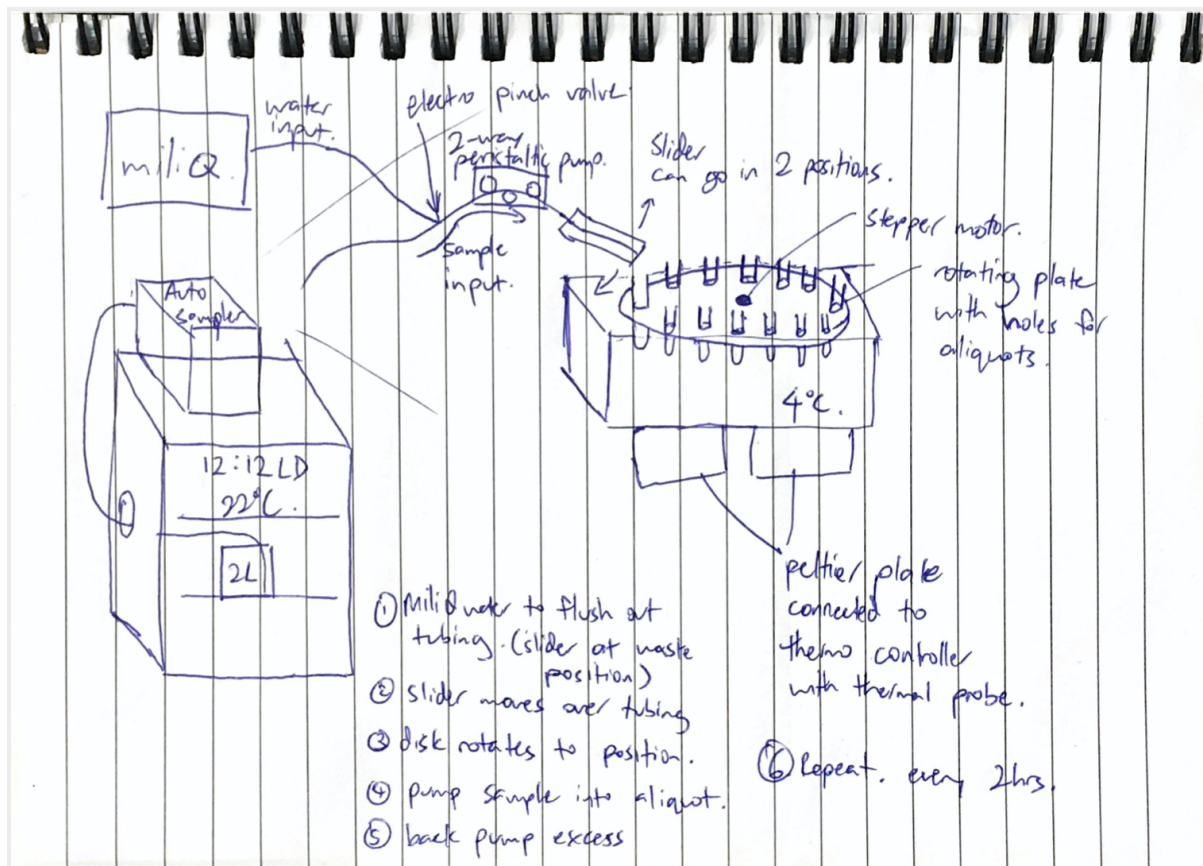 water
input.
miliQ.
electro pinch valve.
2-way
peristaltic pump.
sample
input.
slider
can go in 2 positions.
stepper motor.
rotating plate
with holes for
aliquots.
Auto
sampler
12:12 LD
22°C.
2L
4°C.
peltier plate
connected to
thermo controller
with thermal probe.
① MiliQ water to flush out
tubing. (slider at waste
position)
② slider moves over tubing
③ disk rotates to position.
④ pump sample into aliquot.
⑤ back pump excess
⑥ Repeat. every 2hrs.